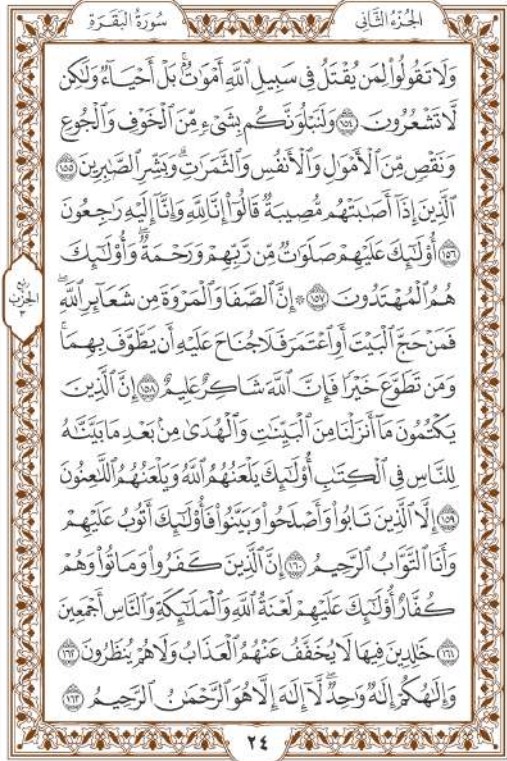 سُورَةُ البَقَرَةِ
الجُزْءُ الثَّانِي
وَلَا تَقُولُواْ لِمَن يُقْتَلُ فِي سَبِيلِ ٱللَّهِ أَمۡوَٰتُۢۚ بَلۡ أَحۡيَآءٞ وَلَٰكِن
لَّا تَشۡعُرُونَ ١٥٤ وَلَنَبۡلُوَنَّكُم بِشَيۡءٖ مِّنَ ٱلۡخَوۡفِ وَٱلۡجُوعِ
وَنَقۡصٖ مِّنَ ٱلۡأَمۡوَٰلِ وَٱلۡأَنفُسِ وَٱلثَّمَرَٰتِۗ وَبَشِّرِ ٱلصَّٰبِرِينَ ١٥٥
ٱلَّذِينَ إِذَآ أَصَٰبَتۡهُم مُّصِيبَةٞ قَالُوٓاْ إِنَّا لِلَّهِ وَإِنَّآ إِلَيۡهِ رَٰجِعُونَ
١٥٦ أُوْلَٰٓئِكَ عَلَيۡهِمۡ صَلَوَٰتٞ مِّن رَّبِّهِمۡ وَرَحۡمَةٞۖ وَأُوْلَٰٓئِكَ
هُمُ ٱلۡمُهۡتَدُونَ ١٥٧ ۞ إِنَّ ٱلصَّفَا وَٱلۡمَرۡوَةَ مِن شَعَآئِرِ ٱللَّهِۖ
رُبْع
الحِزْب
٣
فَمَنۡ حَجَّ ٱلۡبَيۡتَ أَوِ ٱعۡتَمَرَ فَلَا جُنَاحَ عَلَيۡهِ أَن يَطَّوَّفَ بِهِمَاۚ
وَمَن تَطَوَّعَ خَيۡرٗا فَإِنَّ ٱللَّهَ شَاكِرٌ عَلِيمٌ ١٥٨ إِنَّ ٱلَّذِينَ
يَكۡتُمُونَ مَآ أَنزَلۡنَا مِنَ ٱلۡبَيِّنَٰتِ وَٱلۡهُدَىٰ مِنۢ بَعۡدِ مَا بَيَّنَّٰهُ
لِلنَّاسِ فِي ٱلۡكِتَٰبِ أُوْلَٰٓئِكَ يَلۡعَنُهُمُ ٱللَّهُ وَيَلۡعَنُهُمُ ٱللَّٰعِنُونَ
١٥٩ إِلَّا ٱلَّذِينَ تَابُواْ وَأَصۡلَحُواْ وَبَيَّنُواْ فَأُوْلَٰٓئِكَ أَتُوبُ عَلَيۡهِمۡ
وَأَنَا ٱلتَّوَّابُ ٱلرَّحِيمُ ١٦٠ إِنَّ ٱلَّذِينَ كَفَرُواْ وَمَاتُواْ وَهُمۡ
كُفَّارٌ أُوْلَٰٓئِكَ عَلَيۡهِمۡ لَعۡنَةُ ٱللَّهِ وَٱلۡمَلَٰٓئِكَةِ وَٱلنَّاسِ أَجۡمَعِينَ
١٦١ خَٰلِدِينَ فِيهَا لَا يُخَفَّفُ عَنۡهُمُ ٱلۡعَذَابُ وَلَا هُمۡ يُنظَرُونَ ١٦٢
وَإِلَٰهُكُمۡ إِلَٰهٞ وَٰحِدٞۖ لَّآ إِلَٰهَ إِلَّا هُوَ ٱلرَّحۡمَٰنُ ٱلرَّحِيمُ ١٦٣
٢٤